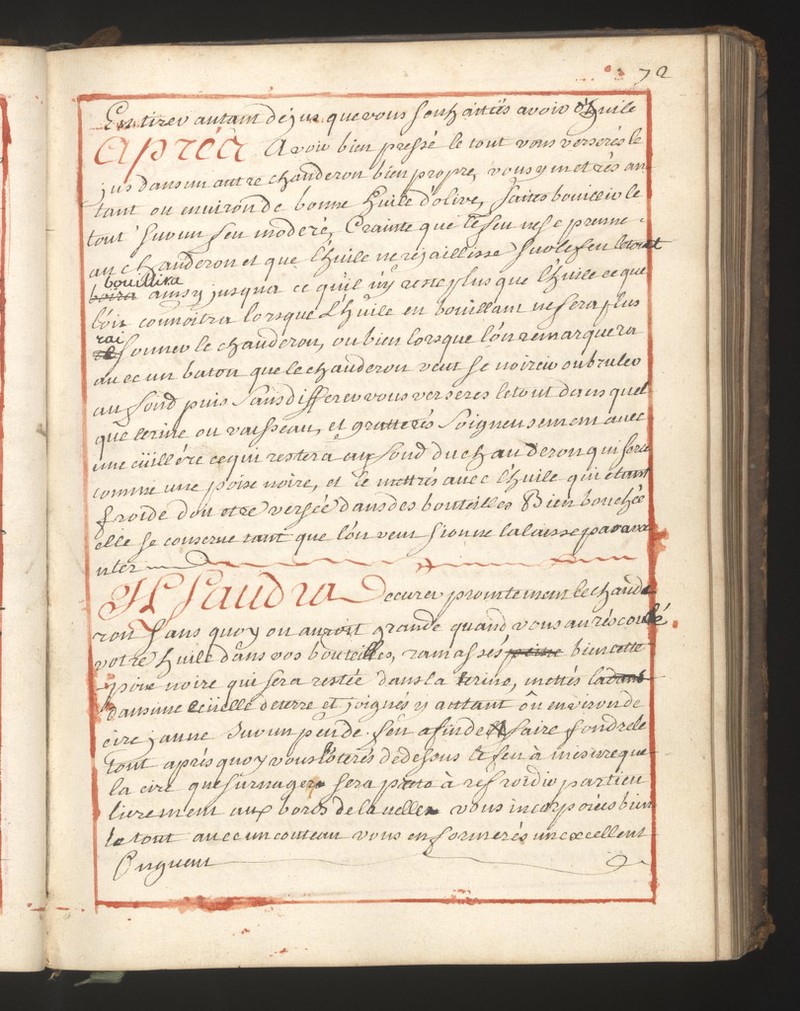 72
En tirer autant de jus que vous souhaittés avoir d'huile
Aprés Avoir bien pressé le tout vous verserés le
jus dans un autre chauderon bien propre, vous y mettrés au-
tant ou environ de bonne huile d'olive, faites bouillir le
tout sur un feu moderé, Crainte que le feu ne se prenne
au chauderon et que l'huile ne rejaillisse sur le feu le tout
bouillira
boira ainsy jusqua ce qu'il n'y reste plus que l'huile ce que
l'ón connoitra lorsque L'huile en bouillant ne fera plus
rai
sonner le chauderon, ou bien lorsque l'ón remarquera
avec un baton que le chauderon veut se noircir ou bruler
au fond puis Sans differer vous verseres le tout dans quel
que terine ou vaisseau, et gratterés Soigneusement avec
une cüillére ce qui restera au fond du chauderon qui sera
comme une poix noire, et le mettrés avec l'huile qui étant
froide doit etre versée dans des bouteilles Bien bouchée
elle se conserve tant que l'ón veut sionne la laisse pas ava
nter
Il Faudra Decurer promtement le chaude
ron Sans quoy on auroit grande quand vous aurés coulé
votre huile dans vos bouteilles, ramassés peine bien cette
poix noire qui sera restée dans la terine, mettés la dans
dans une ecüelle de terre et joignés y autant ôu environ de
cire jaune Sur un peu de feu afin de faire fondre le
tout aprés quoy vous l'oterés de dessus le feu à mesure que
la cire que surnagera sera prete à refroidir particu
lierement aux bords de la uelle vous incorporés bien
le tout avec un couteau vous en formerés un excellent
Onguent